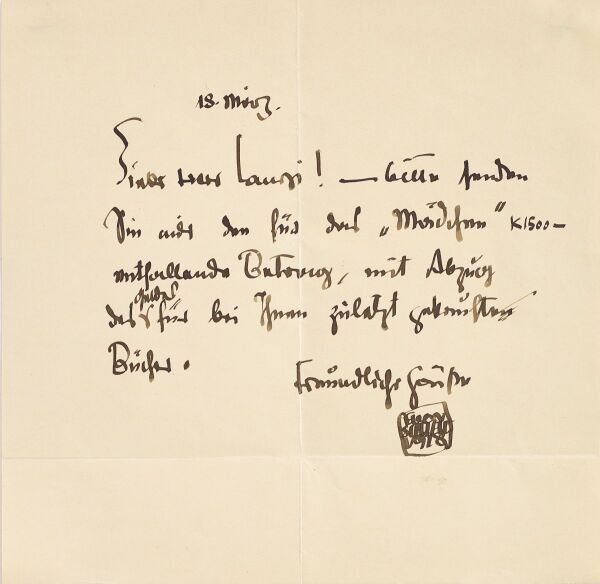 18. März.
Lieber Herr Lanyi! — bitte senden
Sie mir den für das „Mädchen“ K1500—
entfallende Betrag, mit Abzug
Geldes
des für bei Ihnen zuletzt gekauften
Bücher.
Freundliche Grüße
EGON
SCHIELE
1918